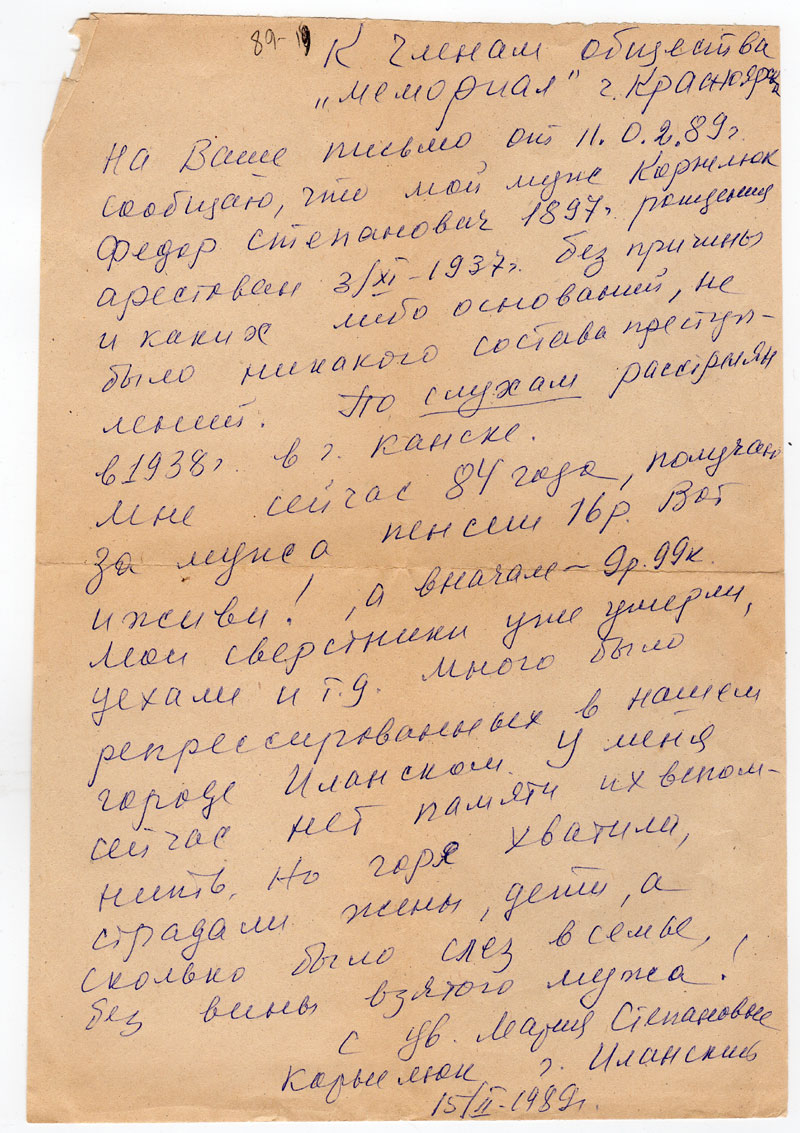 89-19
К Членам общества
„Мемориал" г. Красноярск
На Ваше письмо от 11.0.2.89г.
сообщаю, что мой муж Корнелюк
Федор Степанович 1897г. рождения
арестован 3/XI-1937г. без причины
и каких либо оснований, не
было никакого состава преступ-
лений. По слухам расстрелян
в 1938г. в г. Канске.
Мне сейчас 84 года, получаю
за мужа пенсии 16р. Вот
и живи!, а вначале – 9р.99к.
Мои сверстники уже умерли,
уехали и т.д. Много было
репрессированных в нашем
городе Иланском. У меня
сейчас нет памяти их вспом-
нить. Но горя хватила,
страдали жены, дети, а
сколько было слез в семье,
без вины взятого мужа!
С ув. Мария Степановна
Корнелюк г. Иланский
15/II-1989г.